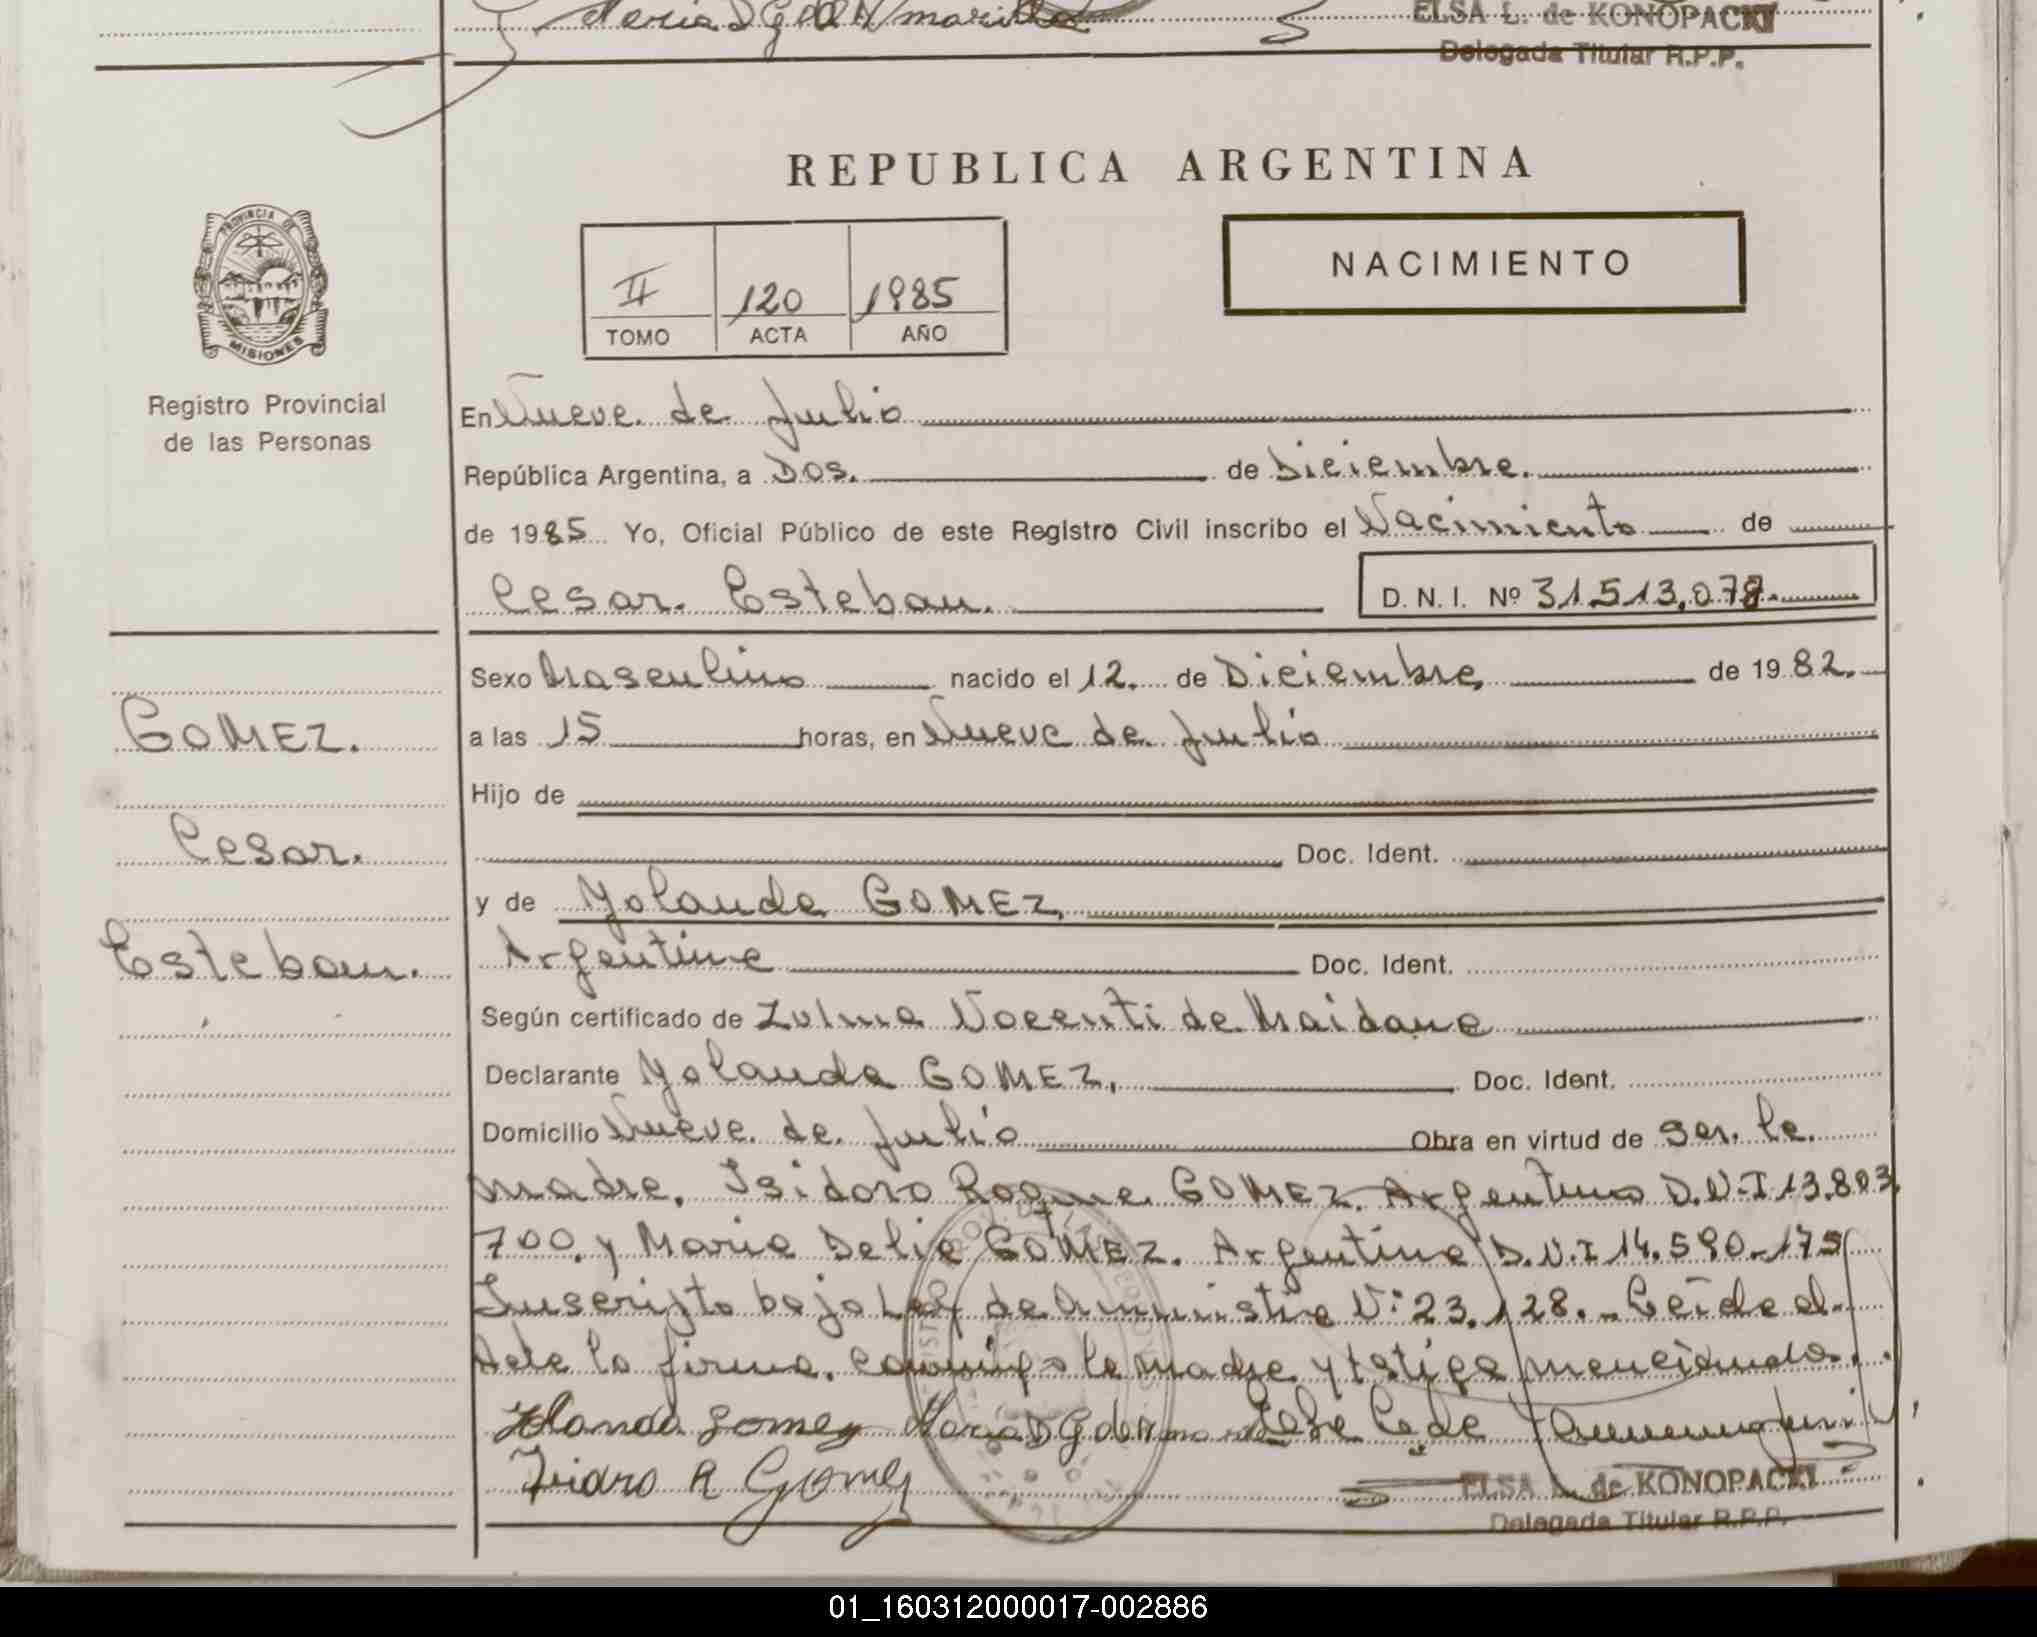 ELSA L. de KONOPACKI
Delegada Titular R.P.P.
REPUBLICA ARGENTINA
PROVINCIA DE
MISIONES
Registro Provincial
de las Personas
II 120 1985
TOMO ACTA AÑO
NACIMIENTO
En Nueve de Julio
República Argentina, a Dos. de Diciembre.
de 1985 Yo, Oficial Público de este Registro Civil inscribo el Nacimiento de
Cesar Esteban. D.N.I. Nº 31.513.078.
Sexo Masculino nacido el 12. de Diciembre de 1982.
GOMEZ.
a las 15 horas, en Nueve de Julio
Hijo de
Cesar.
Doc. Ident.
y de Yolanda GOMEZ
Esteban.
Argentina Doc. Ident.
Según certificado de Zulma Nocenti de Maidana
Declarante Yolanda GOMEZ. Doc. Ident.
Domicilio Nueve de Julio Obra en virtud de ser la
madre. Isidoro Roque GOMEZ. Argentino D.N.I 13.803.
700. y Maria Delia GOMEZ. Argentina D.N.I 14.590.175
Inscripto bajo Ley de Amnistia Nº 23.128. Leída el
Acta la firma conmigo la madre y testigo mencionado.
Yolanda Gomez Maria D G de
Isidro R Gomez
ELSA L. de KONOPACKI
Delegada Titular R.P.P.
01_160312000017-002886